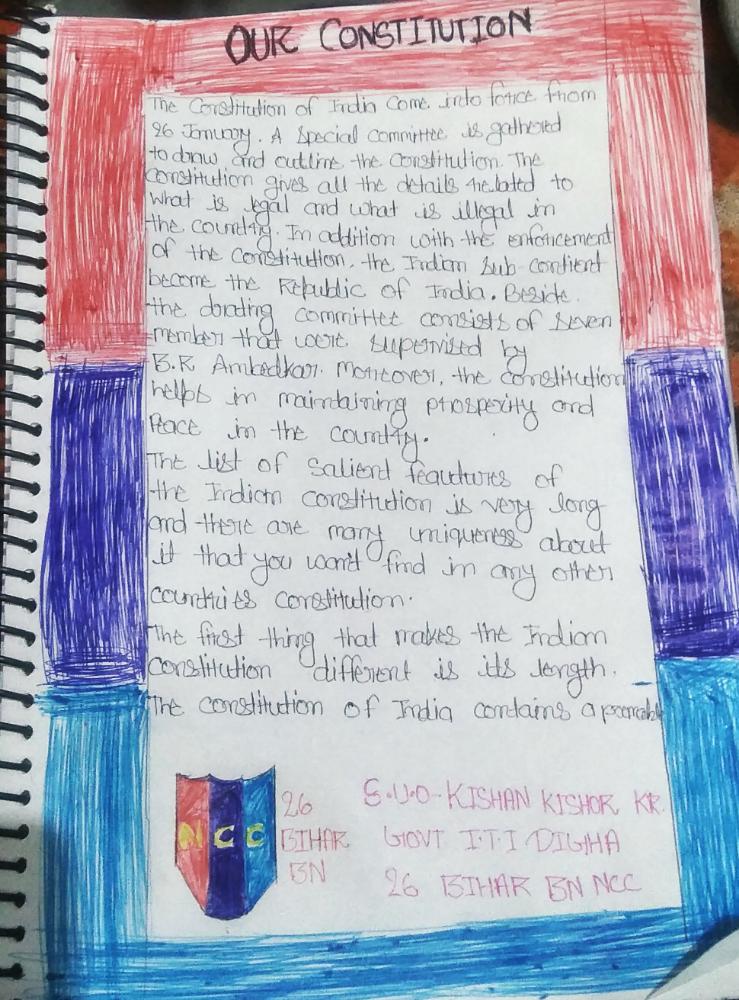 OUR CONSTITUTION
The Constitution of India come into force from
26 January. A Special committee is gathered
to draw and outline the constitution. The
constitution gives all the details related to
what is legal and what is illegal in
the country. In addition with the enforcement
of the constitution, the Indian Sub-contient
become the Republic of India. Beside.
the drading committee consists of seven
member that were supervised by
B.R Ambedkar. Moreover, the constitution
helps in maintaining prosperity and
Peace in the country.
The list of Salient feautures of
the Indian constitution is very long
and there are many uniqueness about
it that you won't find in any other
countries constitution.
The first thing that makes the Indian
constitution different is its length.
The constitution of India contains a preamable
NCC
26
BIHAR
BN
S.U.O-KISHAN KISHOR KR.
GOVT I.T.I DIGHA
26 BIHAR BN NCC